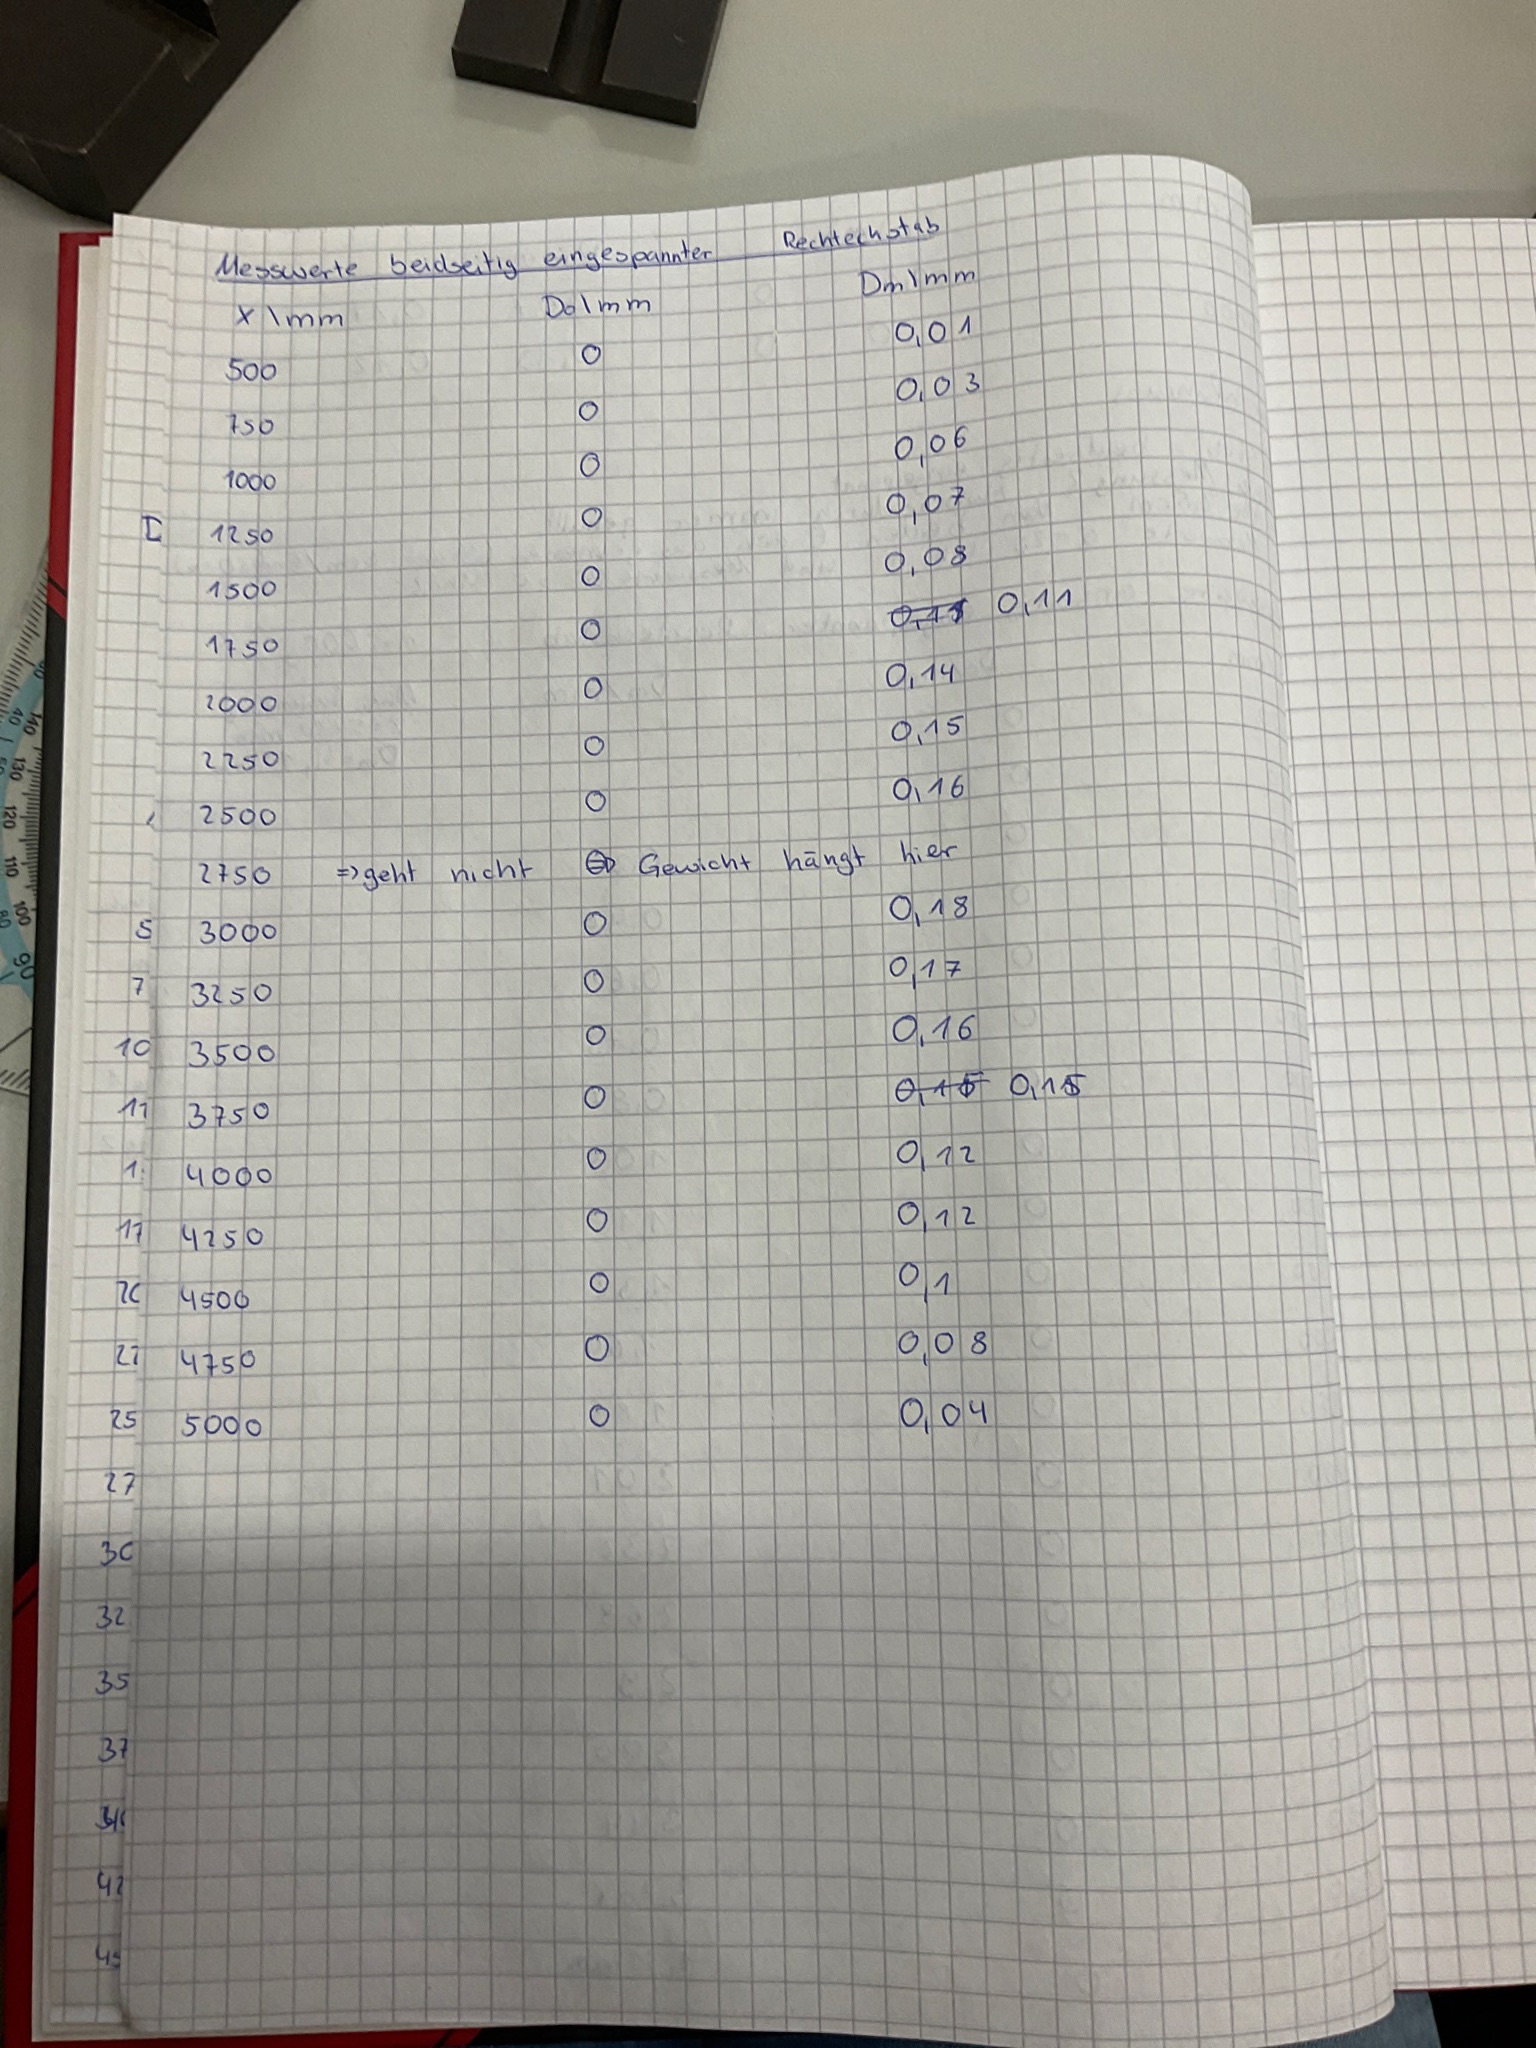 Messwerte beidseitig eingespannter Rechteckstab
X \ mm D0 \ mm Dm \ mm
500 0 0,01
750 0 0,03
1000 0 0,06
1250 0 0,07
1500 0 0,08
1750 0 0,11
2000 0 0,14
2250 0 0,15
2500 0 0,16
2750 => geht nicht Gewicht hängt hier
5 3000 0 0,18
7 3250 0 0,17
10 3500 0 0,16
3750 0 0,15
4000 0 0,12
17 4250 0 0,12
4500 0 0,1
4750 0 0,08
25 5000 0 0,04
27
32
35
37
140
130
120
110
100
90